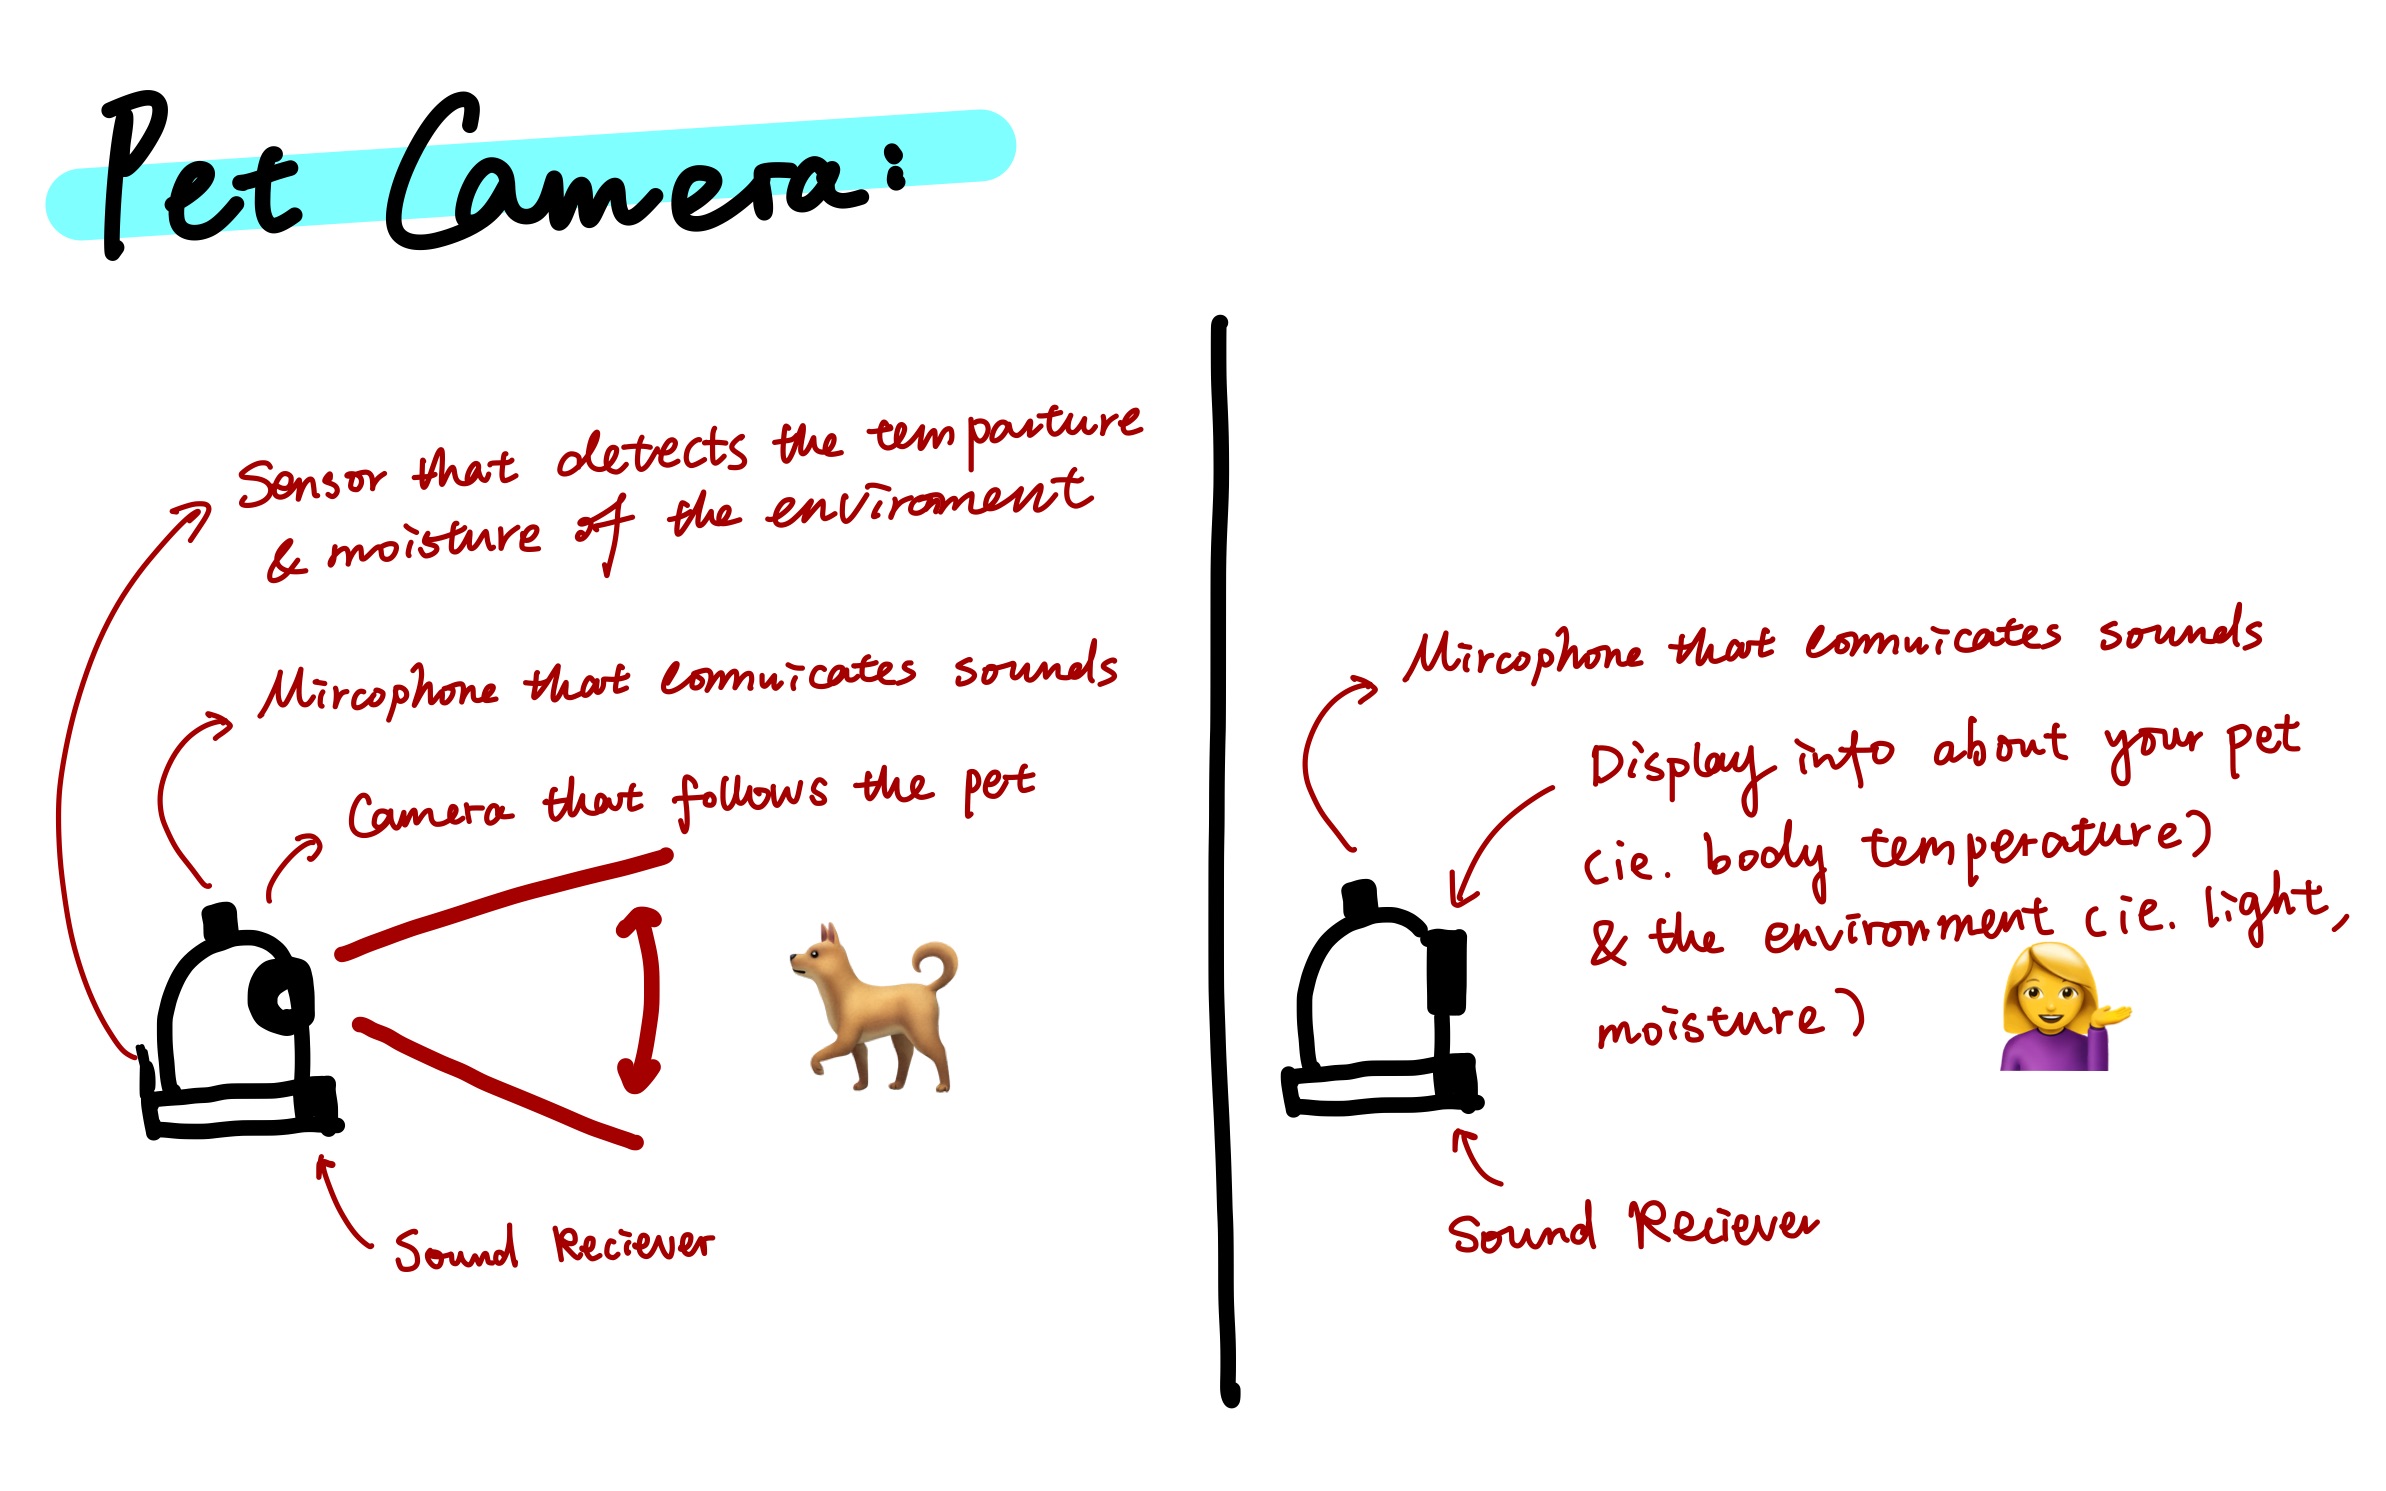 Pet Camera:
Sensor that detects the temparture
& moisture of the enviroment
Mircophone that comnuicates sounds
Camera that follows the pet
Sound Reciever
Mircophone that comnuicates sounds
Display info about your pet
(ie. body temperature)
& the environment (ie. light,
moisture)
Sound Reciever